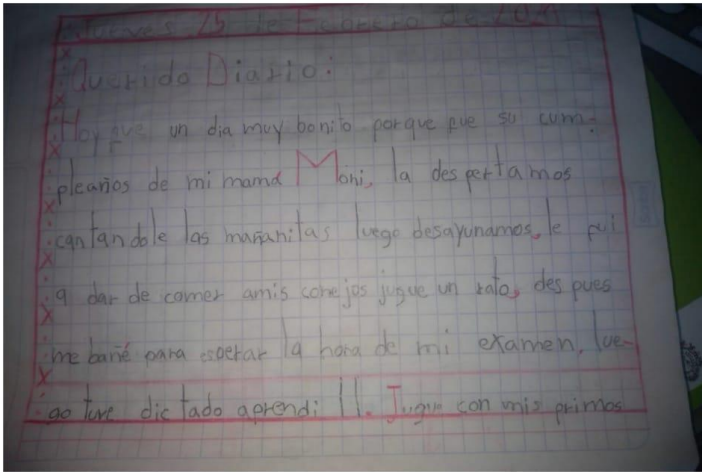 25 de
Querido Diario:
Hoy fue un dia muy bonito porque fue su cum-
pleaños de mi mamá Moni, la despertamos
cantandole las mañanitas luego desayunamos, le fui
a dar de comer amis conejos jugue un rato, des pues
me bañé para esperar la hora de mi examen, lue-
go tuve dictado aprendi 11. Jugue con mis primos